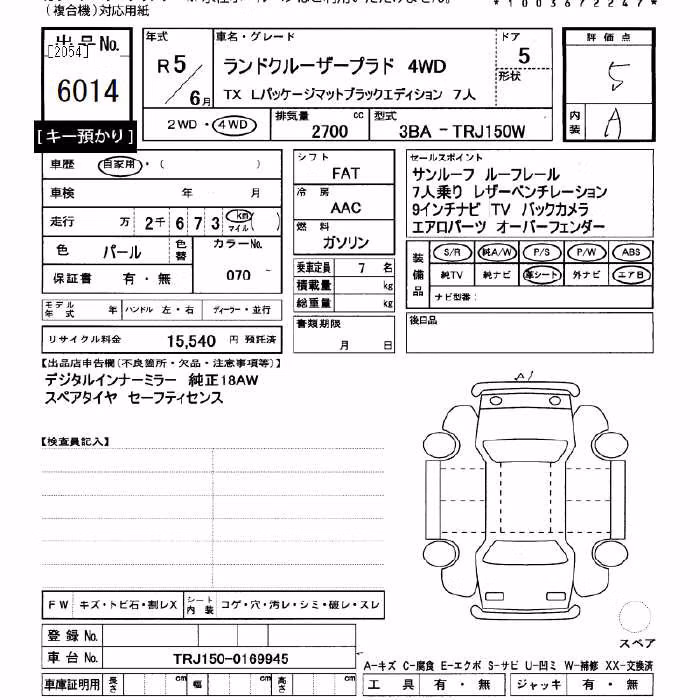 (複合機)対応用紙
*1003672247*
出品No.
[2054]
6014
[キー預かり]
年式
R5/6月
車名・グレード
ランドクルーザープラド 4WD
TX Lパッケージマットブラックエディション 7人
ドア
5
形状
評価点
5
内装
A
2WD・4WD
排気量
2700 cc
型式
3BA - TRJ150W
車歴 自家用・( )
車検 年 月
走行 万 2千 6 7 3 km マイル( )
色 パール
色替
カラーNo.
070
保証書 有・無
モデル年式 年
ハンドル 左・右
ディーラー・並行
リサイクル料金 15,540 円 預託済
シフト
FAT
冷房
AAC
燃料
ガソリン
乗車定員 7 名
積載量 kg
総重量 kg
書類期限
月 日
セールスポイント
サンルーフ ルーフレール
7人乗り レザーベンチレーション
9インチナビ TV バックカメラ
エアロパーツ オーバーフェンダー
装備品
S/R 純A/W P/S P/W ABS
純TV 純ナビ 革シート 外ナビ エアB
ナビ型番:
後日品
【出品店申告欄(不良箇所・欠品・注意事項等)】
デジタルインナーミラー 純正18AW
スペアタイヤ セーフティセンス
【検査員記入】
A1
FW キズ・トビ石・割レX
シート内装 コゲ・穴・汚レ・シミ・破レ・スレ
登録No.
車台No. TRJ150-0169945
車庫証明用 長さ cm 幅 cm 高さ cm
スペア
A-キズ C-腐食 E-エクボ S-サビ U-凹ミ W-補修 XX-交換済
工具 有・無 ジャッキ 有・無